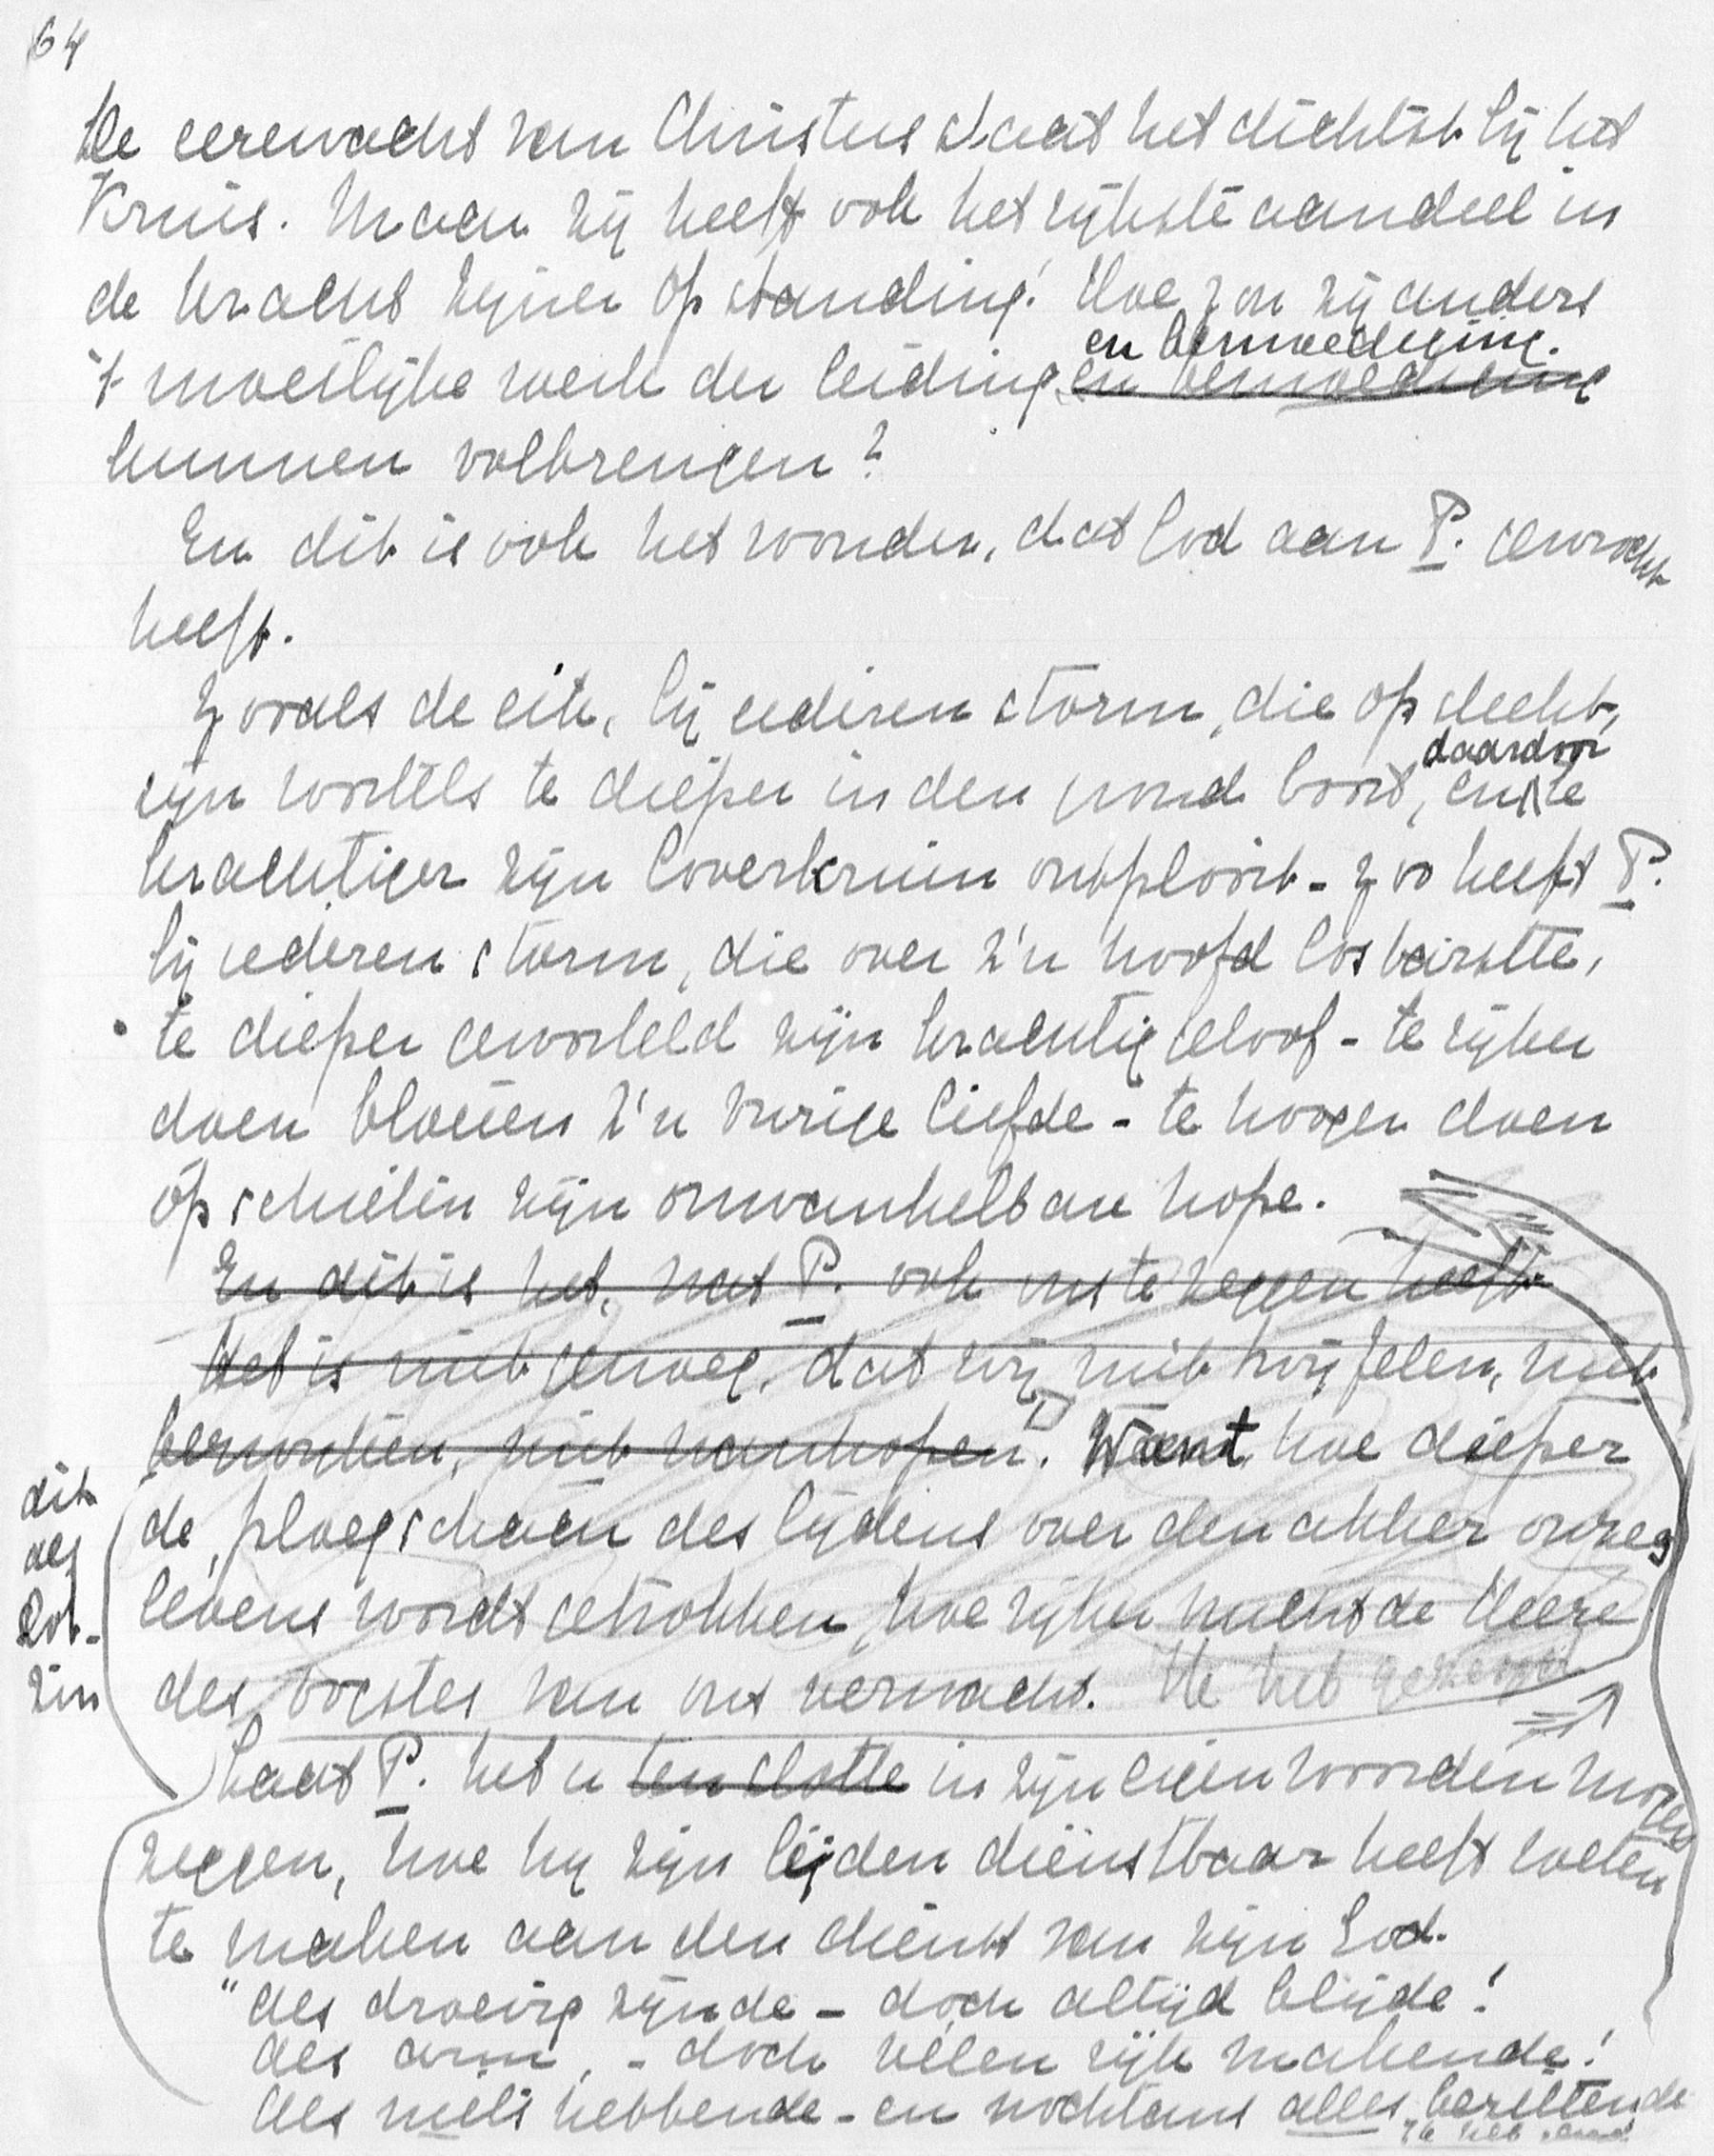 64
De eerewacht van Christus staat het dichtst bij het
Kruis. Maar zij heeft ook het rijkste aandeel in
de kracht zijner opstanding! Hoe zou zij anders
en bemoediging.
't moeilijke werk der leiding en bemoediging
kunnen volbrengen?
En dit is ook het wonder, dat God aan P. gewrocht
heeft.
Zooals de eik, bij iederen storm, die opsteekt,
daardoor
zijn wortels te dieper in den grond boort, en te
krachtiger zijn loverkruin ontplooit - zoo heeft P.
bij iederen storm, die over z'n hoofd losbarstte,
te dieper geworteld zijn krachtig geloof - te rijker
doen bloeien z'n vurige liefde - te hooger doen
opschieten zijn onwankelbare hope.
En dit is het, wat P. ook ons te zeggen heeft
Het is niet genoeg, dat wij niet twijfelen, niet
bezwijken, niet wanhopen. Want hoe dieper
de ploegschaar des lijdens over den akker onzes
levens wordt getrokken, hoe rijker vrucht de Heere
des oogstes van ons verwacht. Ik heb
dit
als
slot-
zin
Laat P. het u ten slotte in zijn eigen woorden mogen
zeggen, hoe hij zijn lijden dienstbaar heeft weten
te maken aan den dienst van zijn God.
"Als droevig zijnde - doch altijd blijde!
Als arm, - doch velen rijk makende!
Als niets hebbende - en nochtans alles bezittende